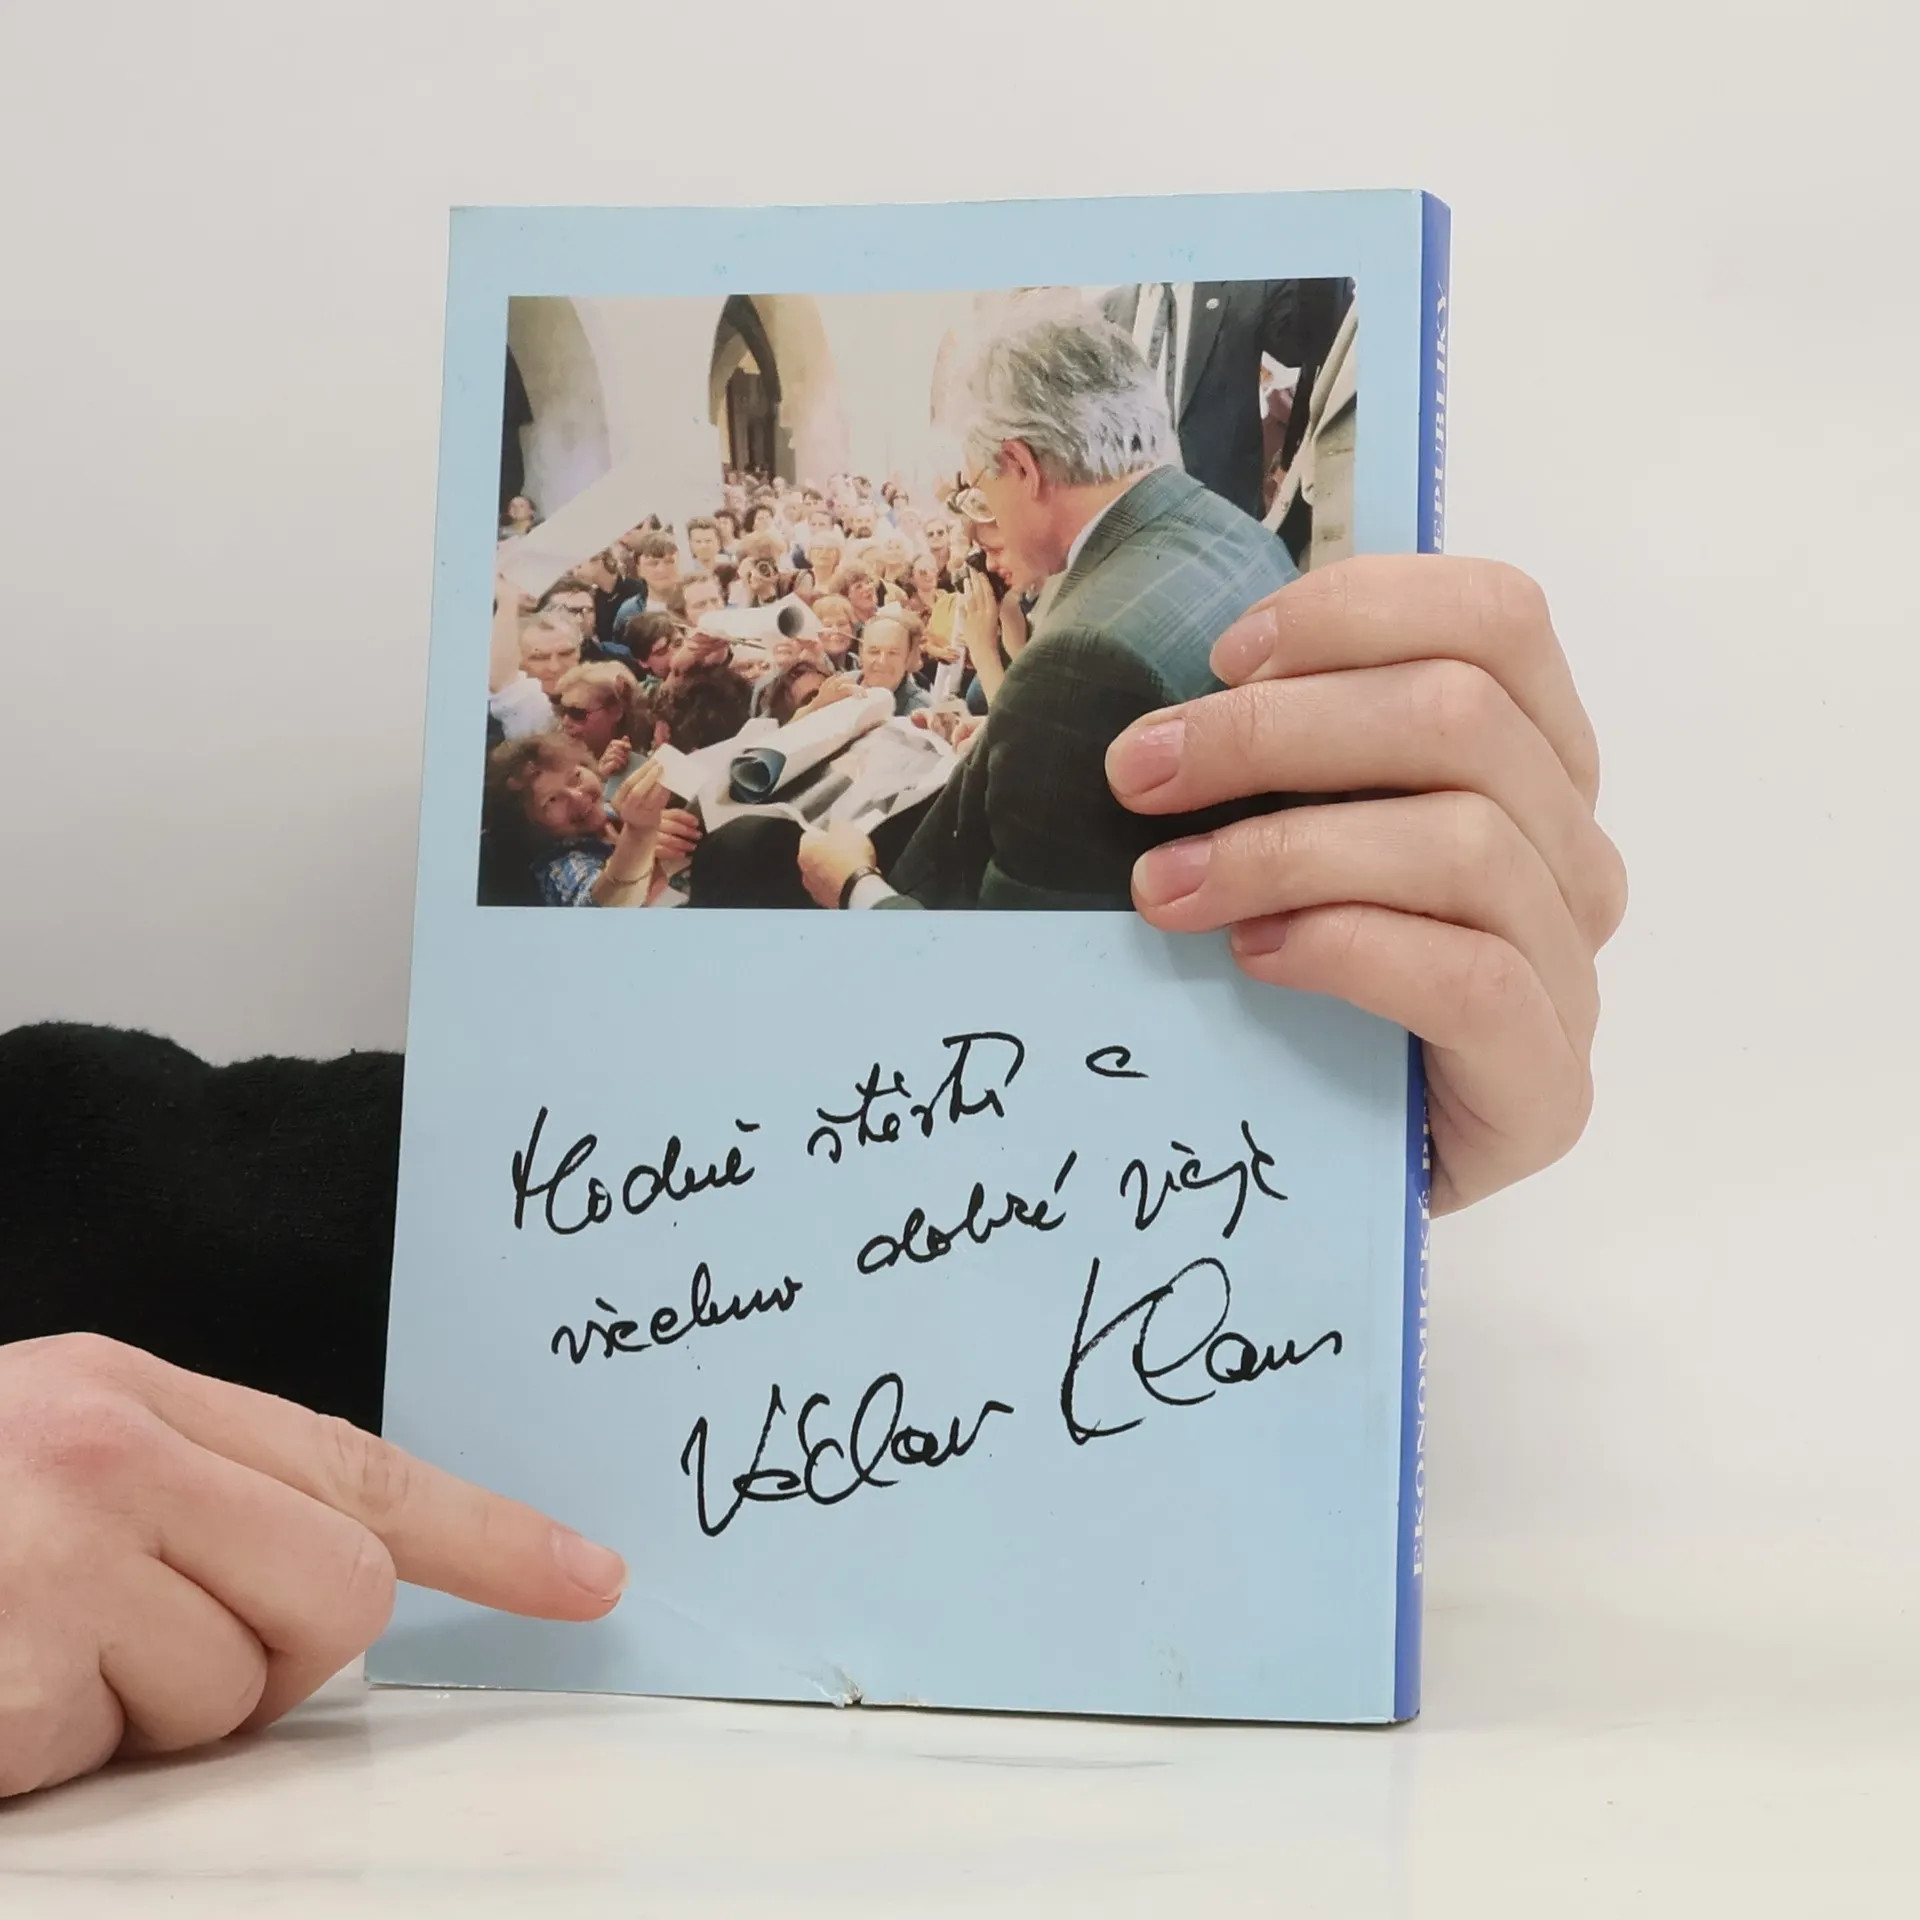 Hodně štěstí a
všechno dobré přeje
Václav Klaus
EKONOMICKÉ
EPUBLIKY